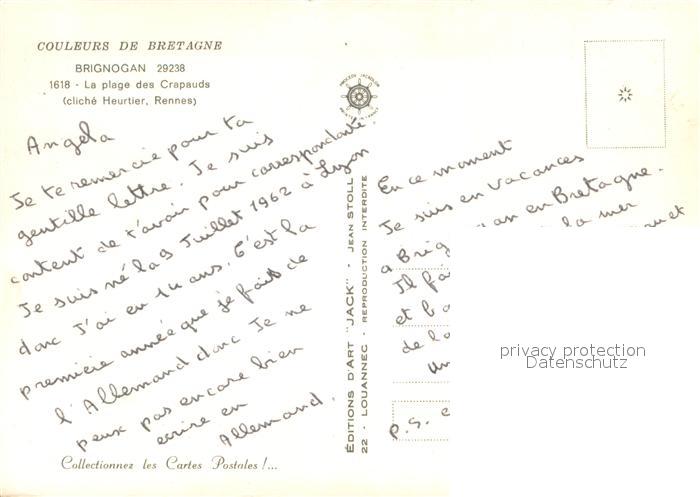 COULEURS DE BRETAGNE
BRIGNOGAN 29238
1618 - La plage des Crapauds
(cliché Heurtier, Rennes)
Angela
Je te remercie pour ta
gentille lettre. Je suis
content de t'avoir pour correspondante
Je suis né la 9 Juillet 1962 à Lyon
donc J'ai en 14 ans. C'est la
première année que je fais de
l'Allemand donc Je ne
peux pas encore bien
ecrire en
Allemand.
Collectionnez les Cartes Postales !...
ÉDITIONS D'ART "JACK"
22 - LOUANNEC - REPRODUCTION INTERDITE
JEAN STOLL
En ce moment
Je suis en vacances
a Brig an en Bretagne.
Il la mer
et
de
un
P.S.
privacy protection
Datenschutz